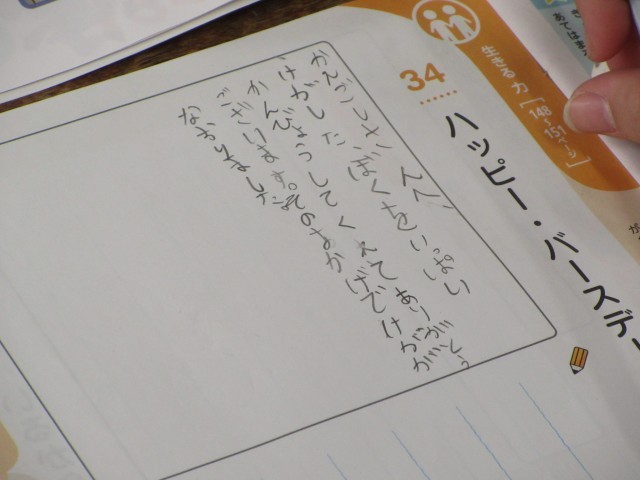 生きる力 [148~151ページ]
34
ハッピー・バースデー
かんごしさんへ、
けがした、ぼくをいっぱい
かんびょうしてくれてありがとう
ございます。そのおかげでけがが
なおりました